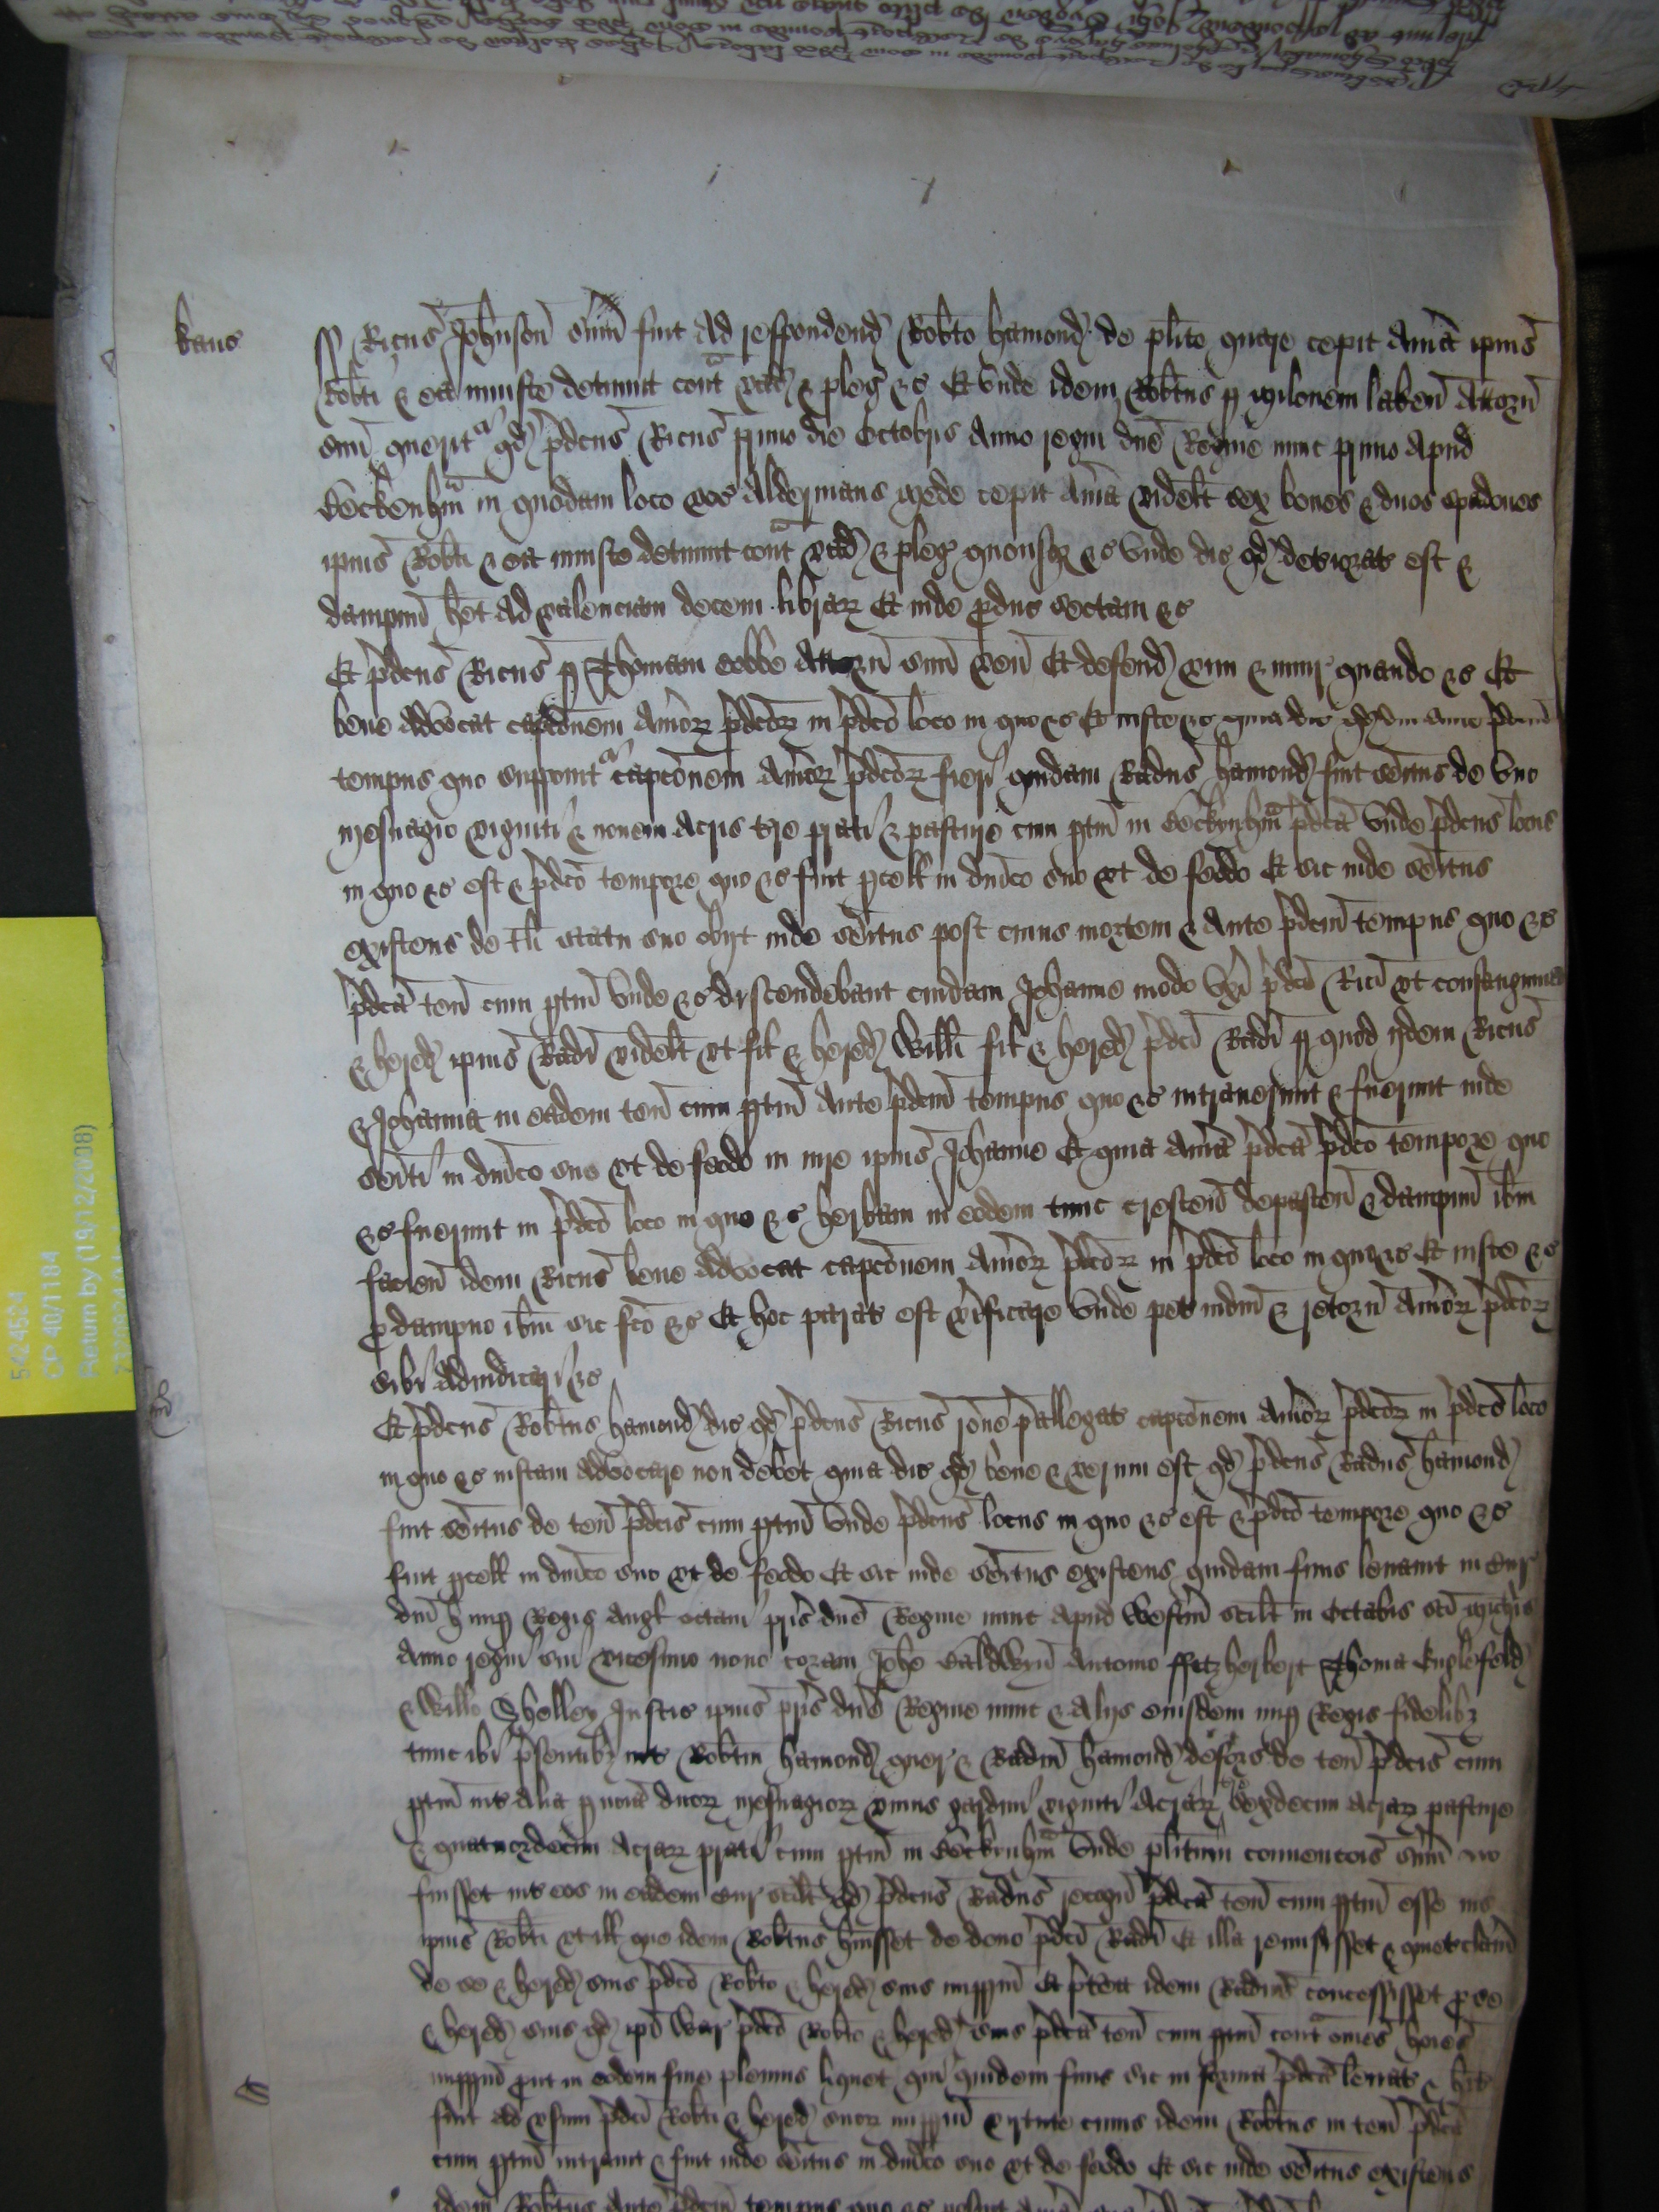 kanc
ss Ricus Johnson sum fuit ad respondend Robto hamond de plito quare cepit averia ipius
Robti & ea iniuste detinuit cont vad & pleg &c Et unde idem Robtus p milonem laken Attorn
suu querit qd pdcus Ricus primo die Octobris Anno regni dne Regine nunc primo apud
Beckenhm in quodam loco voc Aldermans mede cepit avia videlt sex boves & duos spadones
ipius Robti & ea iniuste detinuit cont vad & pleg quousq &c Unde dic qd deteriorat est &
dampnu het ad valenciam decem librar Et inde pduc sectam &c
Et pdcus Ricus p Thomam cobbe Attorn suu ven Et defend vim & iniur quando &c Et
bene advocat capconem avior pdcor in pdco loco in quo &c Et iuste &c quia dic qd diu ante pdcm
tempus quo supponit capconem avior pdcor fieri quidam Radus hamond fuit seitus de uno
mesuagio viginti & novem acris tre prati & pasture cum ptin in Beckenhm pdca Unde pdcus locus
in quo &c est & pdco tempore quo &c fuit pcell in dnico suo ut de feodo Et sic inde seitus
existens de tli statu suo obijt inde seitus post cuius mortem & ante pdcm tempus quo &c
pdca ten cum ptin Unde &c discendebant cuidam Johanne modo uxi pdci Rici ut consanguinee
& hered ipius Radi videlt ut fil & hered Willi fil & hered pdci Radi p quod ijdem Ricus
& Johanna in eadem ten cum ptin ante pdcm tempus quo &c intraverunt & fuerunt inde
seiti in dnico suo ut de feodo in iure ipius Johanne Et quia avia pdca pdco tempore quo
&c fuerunt in pdco loco in quo &c herbam in eodem tunc crescen depascen & dampnu ibm
facien idem Ricus bene advocat capconem avior pdcor in pdco loco in quo &c Et iuste &c
p dampno ibm sic fco &c Et hoc parat est vificare Unde pet iudm & retorn avior pdcor
sibi adiudicari &c
Et pdcus Robtus hamond dic qd pdcus Ricus rone pallegat capconem avior pdcor in pdco loco
in quo &c iustam advocare non debet quia dic qd bene & verum est qd pdcus Radus hamond
fuit seitus de ten pdcis cum ptin Unde pdcus locus in quo &c est & pdco tempore quo &c
fuit pcell in dnico suo ut de feodo Et sic inde seitus existens quidam finis levavit in Cur
dni H nup Regis Angl octavi pris dne Regine nunc apud Westm scilt in Octabis sci michis
Anno regni sui vicesimo nono coram Johe Baldwyn Antonio ffitzherbert Thoma Englefeld
& Willo Shelley Justic ipius pris dne Regine nunc & alijs eiusdem nup Regis fidelibz
tunc ibi psentibz int Robtm hamond quer & Radm hamond deforc de ten pdcis cum
ptin int alia p noia duor mesuagior unius gardini viginti acrar tre sexdecim acrar pasture
& quatuordecim acrar prati cum ptin in Beckenhm Unde plitum convencois sum
fuisset int eos in eadem Cur scilt qd pdcus Radus recogn pdca ten cum ptin esse ius
ipius Robti ut ill que idem Robtus huisset de dono pdci Radi Et illa remisisset & quietclam
de se & hered suis pdco Robto & hered suis imppm Et ptea idem Radus concessisset p se
& hered suis qd ipi War pdco Robto & hered suis pdca ten cum ptin cont omes hoies
imppm put in eodem fine plenius liquet qui quidem finis sic in forma pdca levat & hit
fuit ad usum pdci Robti & hered suor imppm virtute cuius idem Robtus in ten pdca
cum ptin intravit & fuit inde seitus in dnico suo ut de feodo Et sic inde seitus existens
idem Robtus ante pdcm tempus quo &c
5424524
CP 40/1184
Return by (19/12/2008)